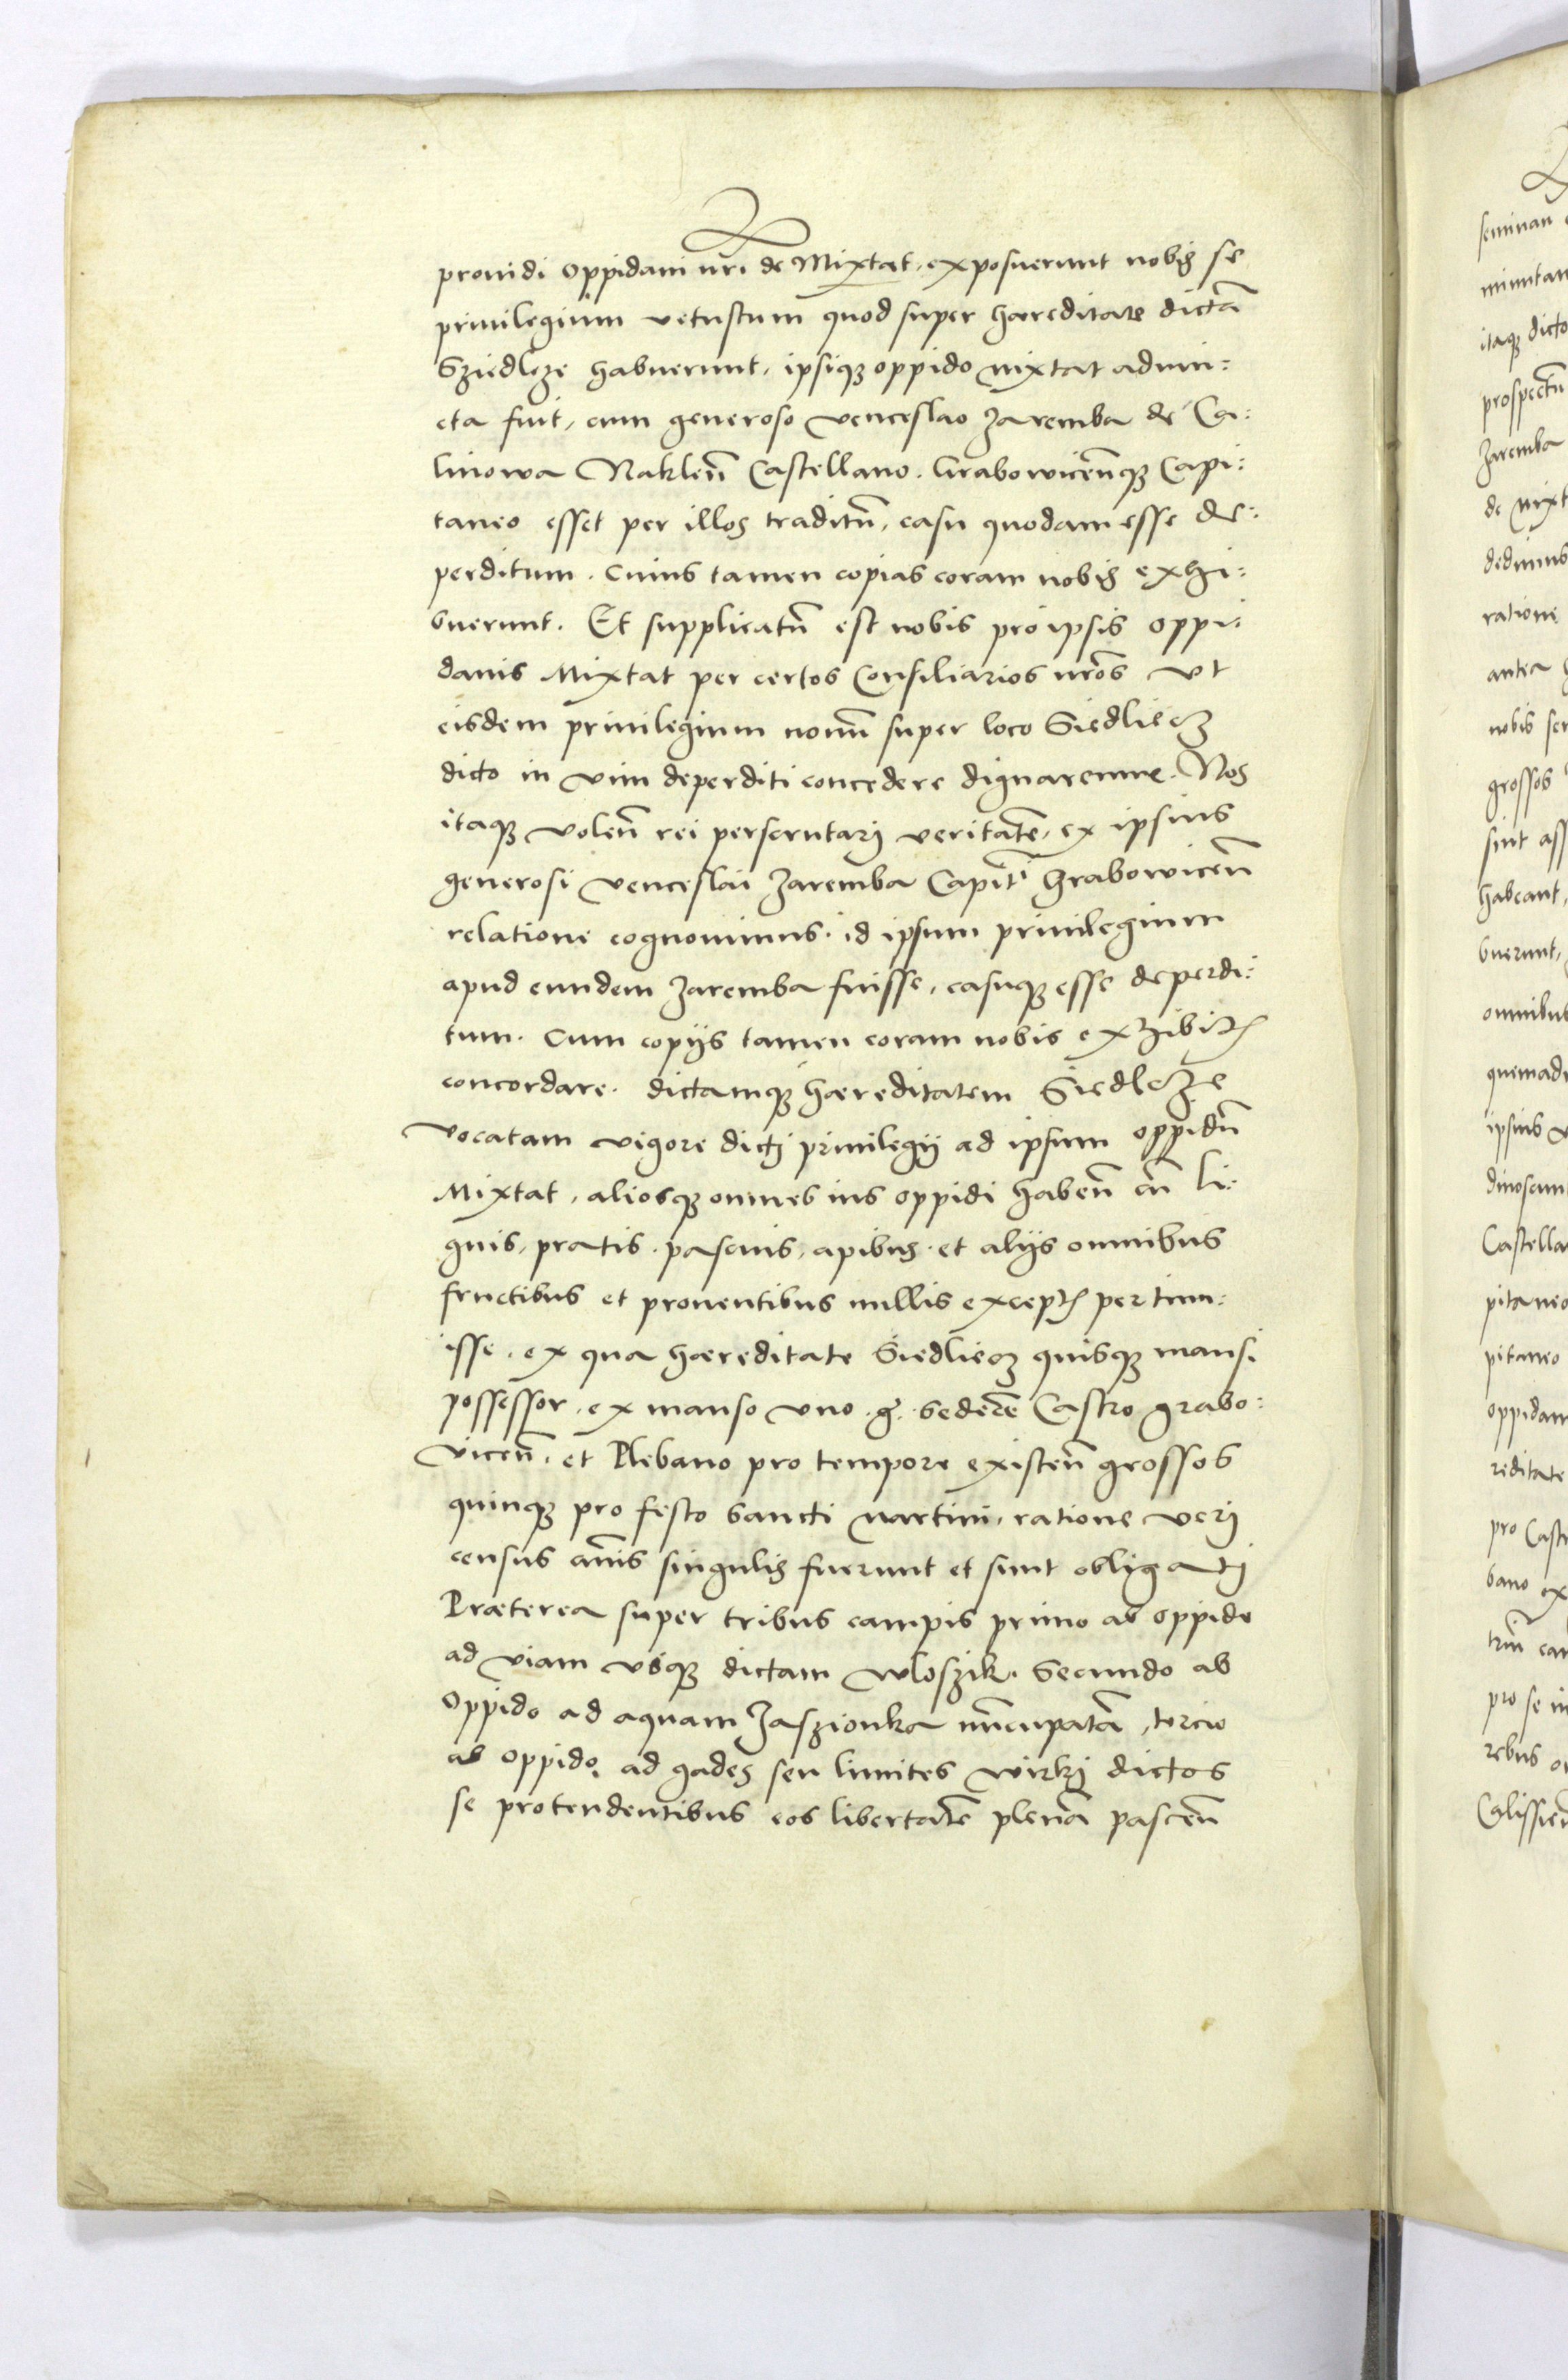 prouidi oppidani nri de Mixtat, exposuerunt nobis se
priuilegium vetustum quod super haereditate dictã
Sziedleze habuerunt, ipsiq oppido mixtat adiun:
cta fuit, cum generoso venceslao Zaremba de Ca:
linowa Nakleñ Castellano. Grabowiceñq Capi:
taneo esset per illos traditũ, casu quodam esse de:
perditum. Cuius tamen copias coram nobis exhi:
buerunt. Et supplicatũ est nobis pro ipsis oppi:
danis Mixtat per certos Consiliarios nros vt
eisdem priuilegium nouũ super loco Siedliecz
dicto in vim deperditi concedere dignaremur. Nos
itaq voleñ rei perscrutari veritatẽ, ex ipsius
generosi venceslai Zaremba Capitĩ Grabowiceñ
relatione cognouimus. id ipsum priuilegium
apud eundem Zaremba fuisse, casuq esse deperdi:
tum. Cum copijs tamen coram nobis exhibit
concordare. dictamq haereditatem Siedlcze
vocatam vigore dictj priuilegij ad ipsum oppidũ
Mixtat, aliosq omnes ius oppidi habeñ cũ li:
gnis, pratis, pascuis, apibus, et alijs omnibus
fructibus et prouentibus nullis except pertinu:
isse. ex qua haereditate Siedliecz quisq mansi
possessor, ex manso vno .g. sederẽ Castro grabo:
viceñ, et Plebano pro tempore existeñ grossos
quinq pro festo sancti martini, ratione veri
census annis singulis fuerunt et sunt obligatj
Praeterea super tribus campis primo ab oppido
ad viam vsq dictam wloszik. Secundo ab
Oppido ad aquam Zaszionka nũcupatã, tercio
ab oppido ad gades seu limites wirkj dictos
se protendentibus eos libertatẽ plenã pasceñ
seminan
minutam
itaq dicto
prospectu
Zaremba
de mixt
dedimus
ratione
antea
nobis ser
grossos
sint ass
habeant,
buerunt,
omnibus
quemadm
ipsius v
dinosam
Castella
pitaneo
pitaneo
oppidam
reditate
pro Cast
bano ex
triũ cam
pro se in
rebus o
Calissien